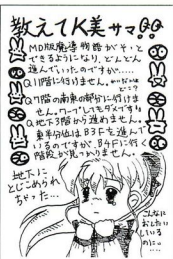 教えてK美サマ!!
MD版魔導物語がやっと
できるようになり、どんどん
進んでいったのですが……
Q11階に行けません。
Q7階の南東の部分に行けま
せん。ワープしてもダメです。
Q地下3階から進めません。
東半分位はB3Fを進んで
いるのですが、B4Fに行く
階段が見つかりません。
地下に
とじこめられ
ちゃた…
こんなに
おしたい
しているのに…